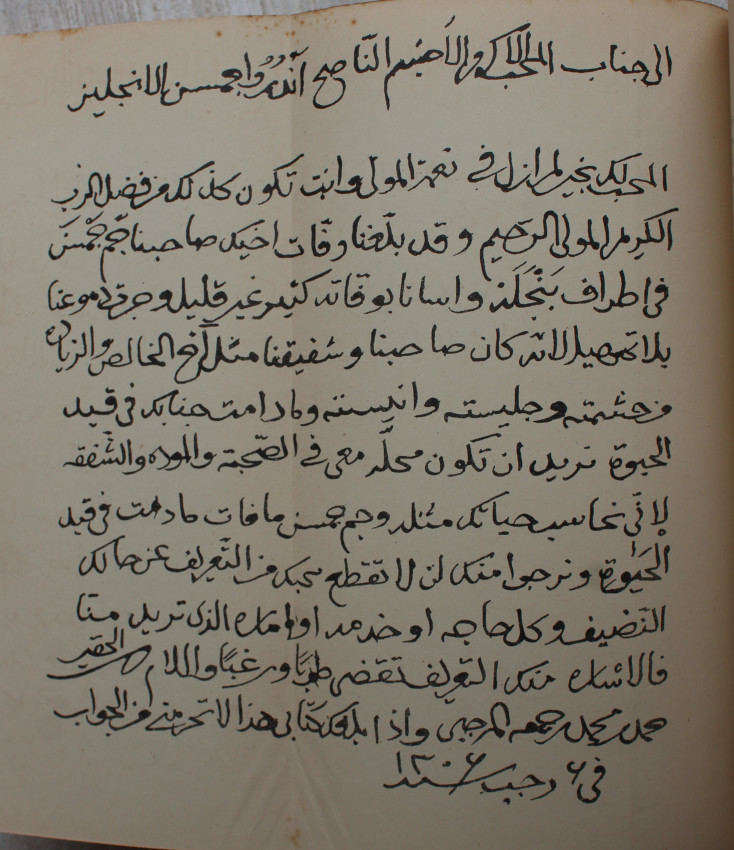 الى جناب المحب الاكرم الاحشم الناصح آندرو اجمسن الانجليز
المحب لك بخير لم ازل في نعمة المولى وانت تكون كذلك من فضل الرب
الكريم المولى الرحيم وقد بلّغنا وفات اخيك صاحبنا جَم جَمْسَن
في اطراف بَنْجَلَه واسانا بوفاته كثير غير قليل وجرى دموعنا
بلا تمهيل لانه كان صاحبنا وشفيقنا مثل أخ الخالص والزياده
من حشمته وجليسته وانيسته وما دامت جنابك في قيد
الحيوة نريد ان تكون محلّه معي في الصّحبة والموده والشّفقه
لإنّي نحاسب حياتك مثله وجم جمسن ما فات ما دمت في قيد
الحَيٰوة ونرجوا منك لن لا تقطع محبك من التّعريف عن حالك
النّضيف وكل حاجه او خدمه او اماره الذى تريد منّا
فالاشاره منك التعريف تقضى طوبًا ورغبًا والسلام من الحقير
محمد جمعه المرجبى واذا بلغك كتابى هذا لا تحرمني من الجواب
في ٦ رجب سنه ١٣٠٦